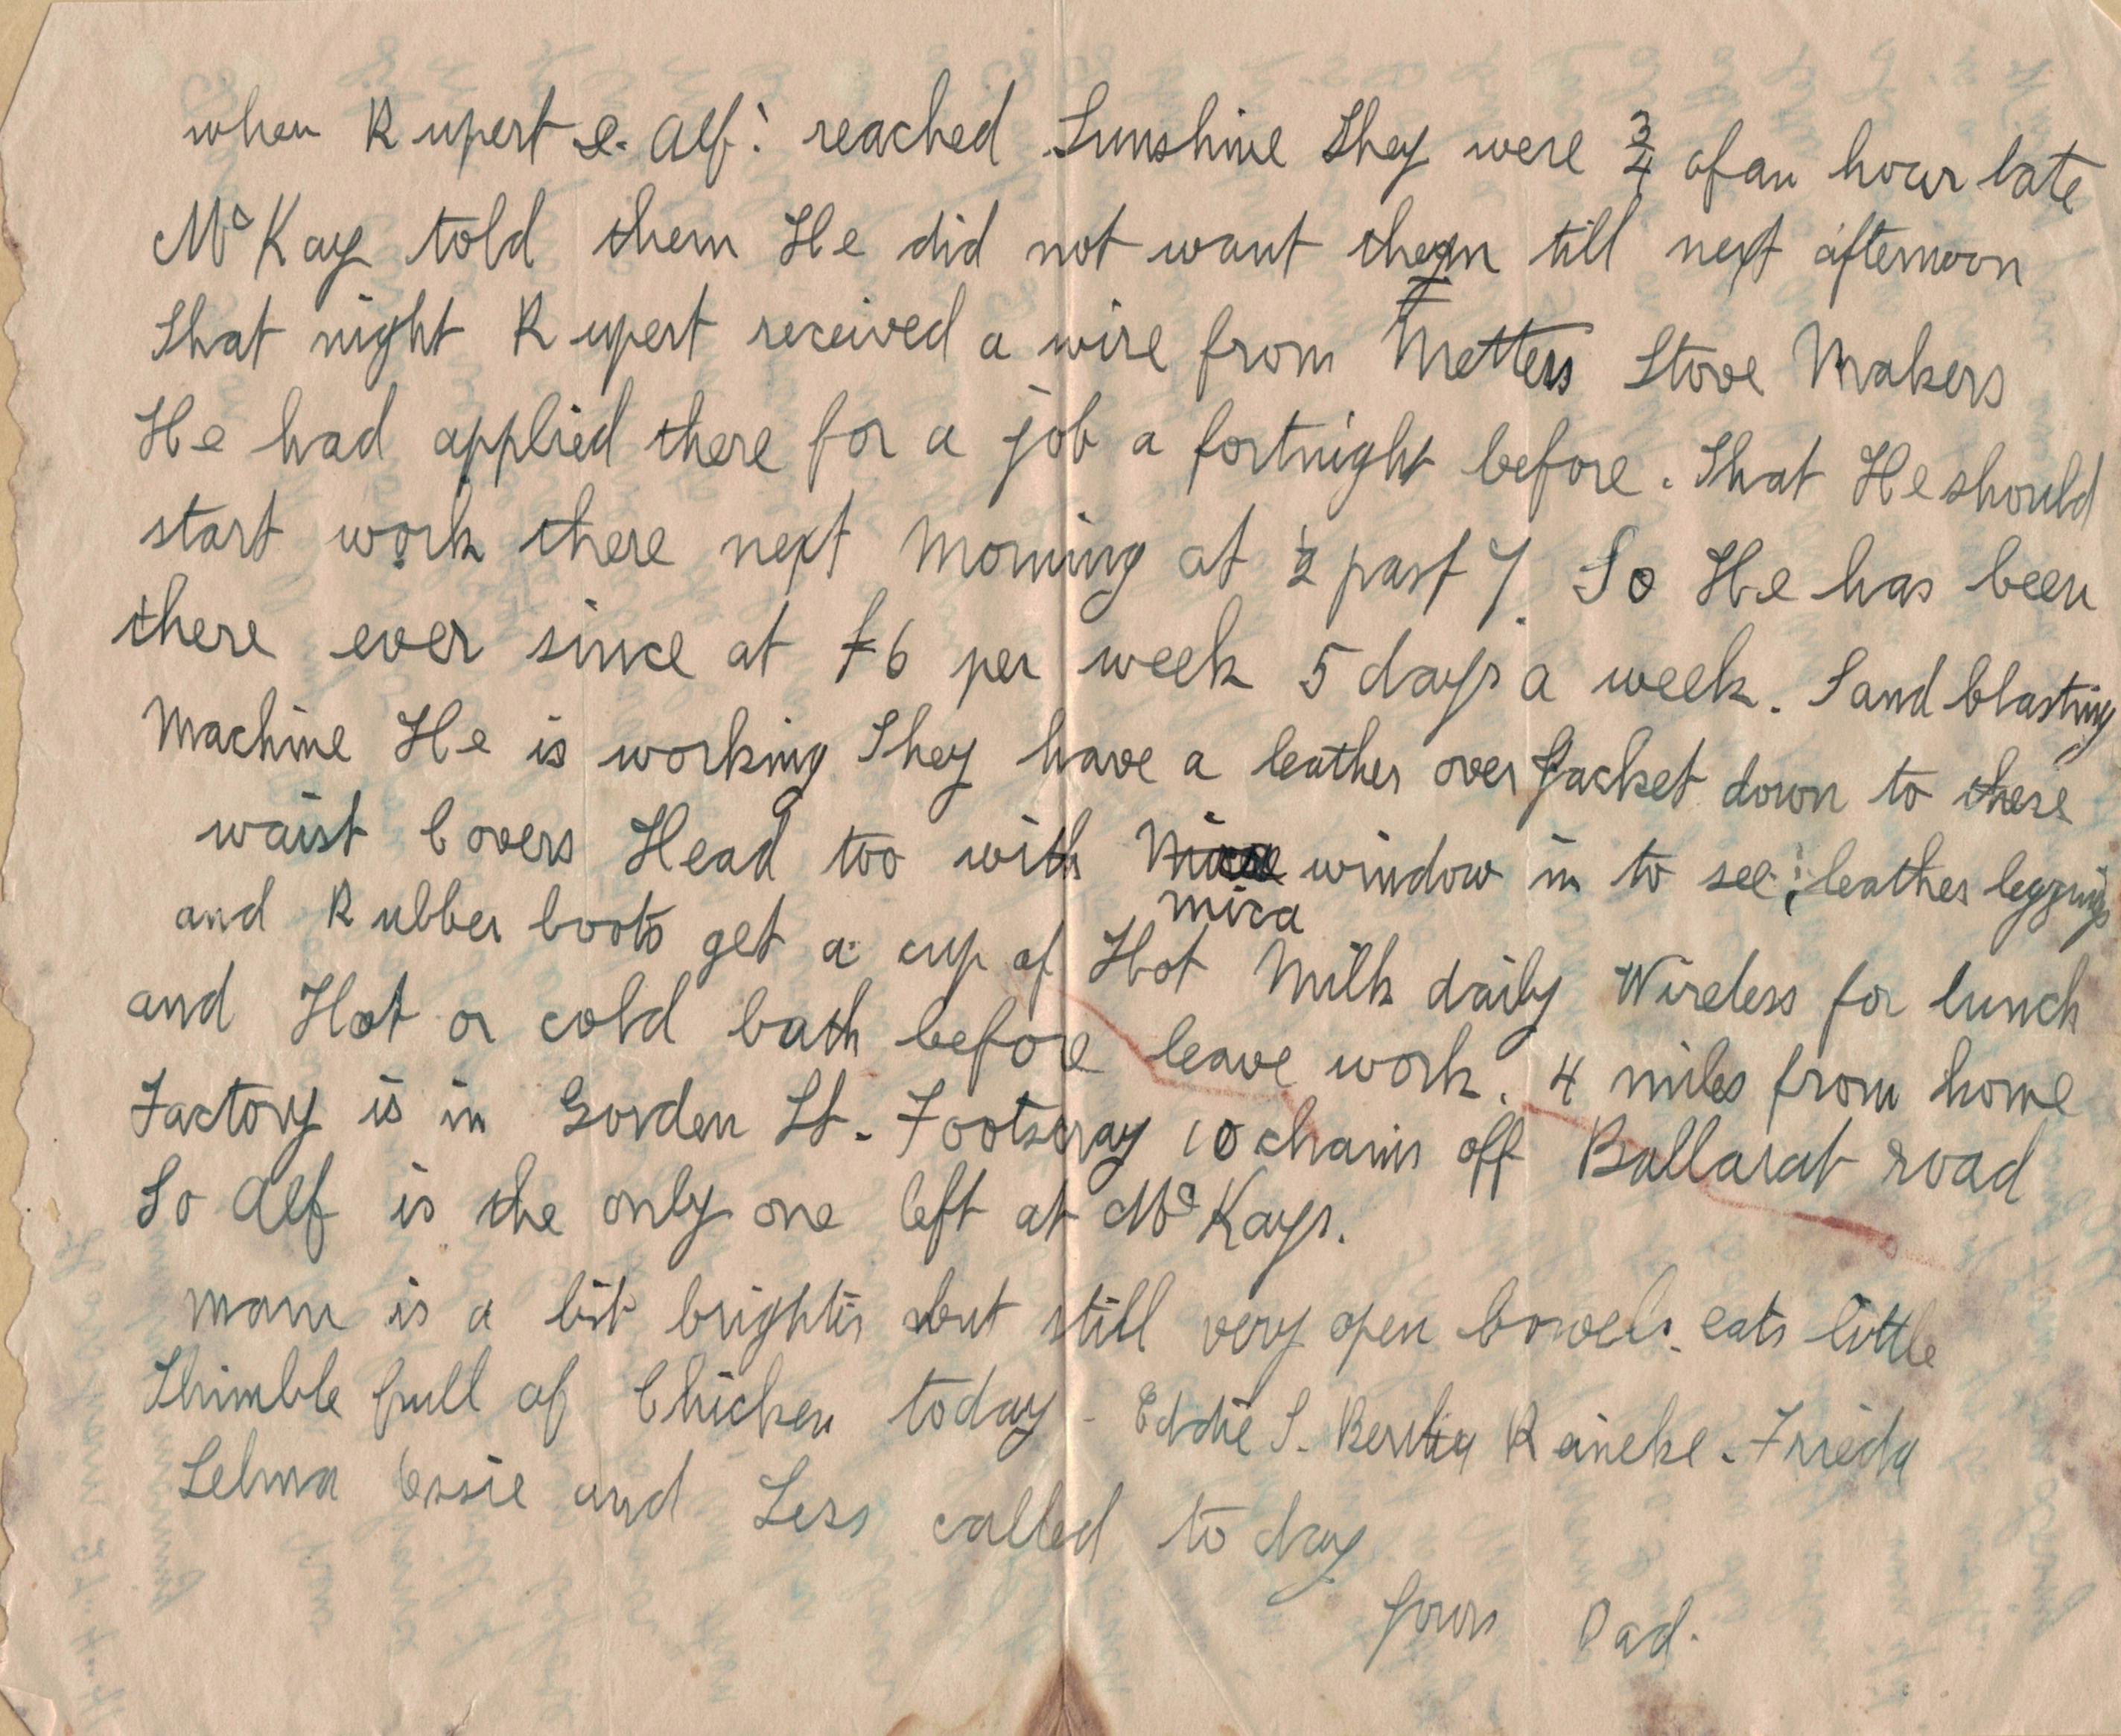 when Rupert & Alf: reached Sunshine they were 3/4 of an hour late
McKay told them He did not want them till next afternoon
that night Rupert received a wire from Metters Stove Makers
He had applied there for a job a fortnight before. That He should
start work there next morning at 1/2 past 7. So He has been
there ever since at £6 per week 5 days a week. Sand blasting
Machine He is working They have a leather over Jacket down to there
waist Covers Head too with window in to see; leather leggings
mica
and Rubber boots get a cup of Hot Milk daily Wireless for lunch
and Hot or cold bath before leave work. 4 miles from home
Factory is in Gorden St. Footscray 10 chains off Ballarat road
So Alf is the only one left at McKays.
Mam is a bit brighter but still very open bowels. eats little
Thimble full of Chicken today - Eddie S. Bertha Raineke. Frieda
Selma Essie and Less called to day
Yours Dad.